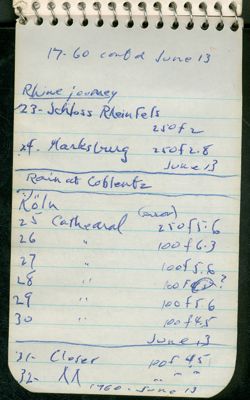 17-60 cont'd June 13
Rhine journey
23- Schloss Rheinfels
250 f 2
24. Marksburg 250 f 2.8
June 13
Rain at Coblentz
Köln
25 Cathedral 250 f 5.6
26 " 100 f 6.3
27 " 100 f 5.6
28 " 100 f ?
29 " 100 f 5.6
30 " 100 f 4.5
June 13
31- Closer 100 f 4.5
32- " " "
1760 - June 13